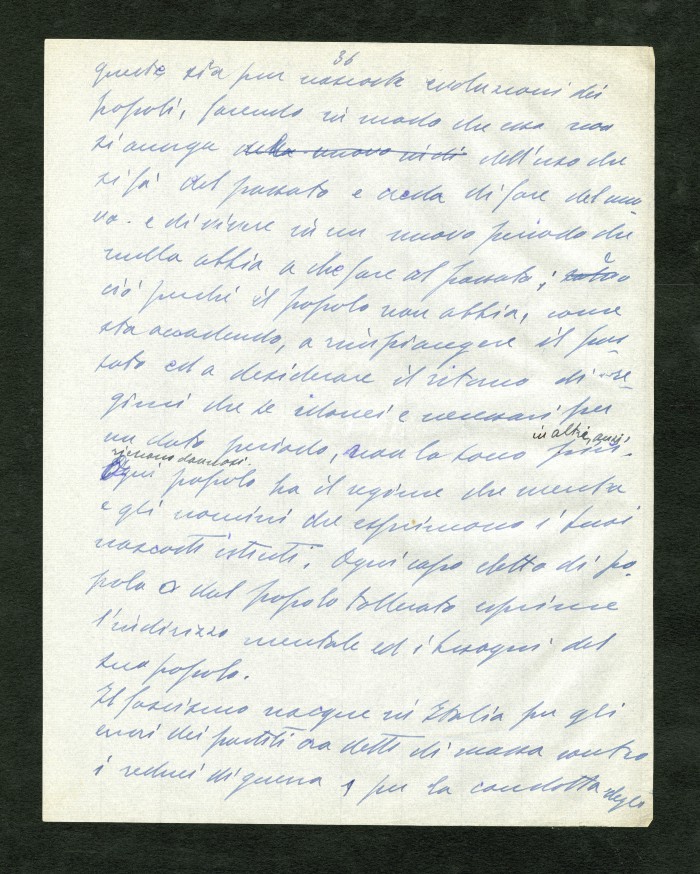 36
queste sia pur nascoste evoluzioni dei
popoli, facendo in modo che essa non
si accorga della nuovo indi dell'uso che
si fa del passato e creda di fare del nuo
vo e di vivere in un nuovo periodo che
nulla abbia a che fare col passato;
ciò perché il popolo non abbia, come
sta accadendo, a rimpiangere il pas
sato ed a desiderare il ritorno di re
gimi che se idonei e necessari per
un dato periodo, non lo sono più
in altri, anzi
riescono dannosi.
Ogni popolo ha il regime che merita
e gli uomini che esprimono i suoi
nascosti istinti. Ogni capo eletto di po
polo o dal popolo tollerato esprime
l'indirizzo mentale ed i bisogni del
suo popolo.
Il fascismo nacque in Italia per gli
errori dei partiti ora detti di massa contro
i reduci di guerra, per la condotta degli